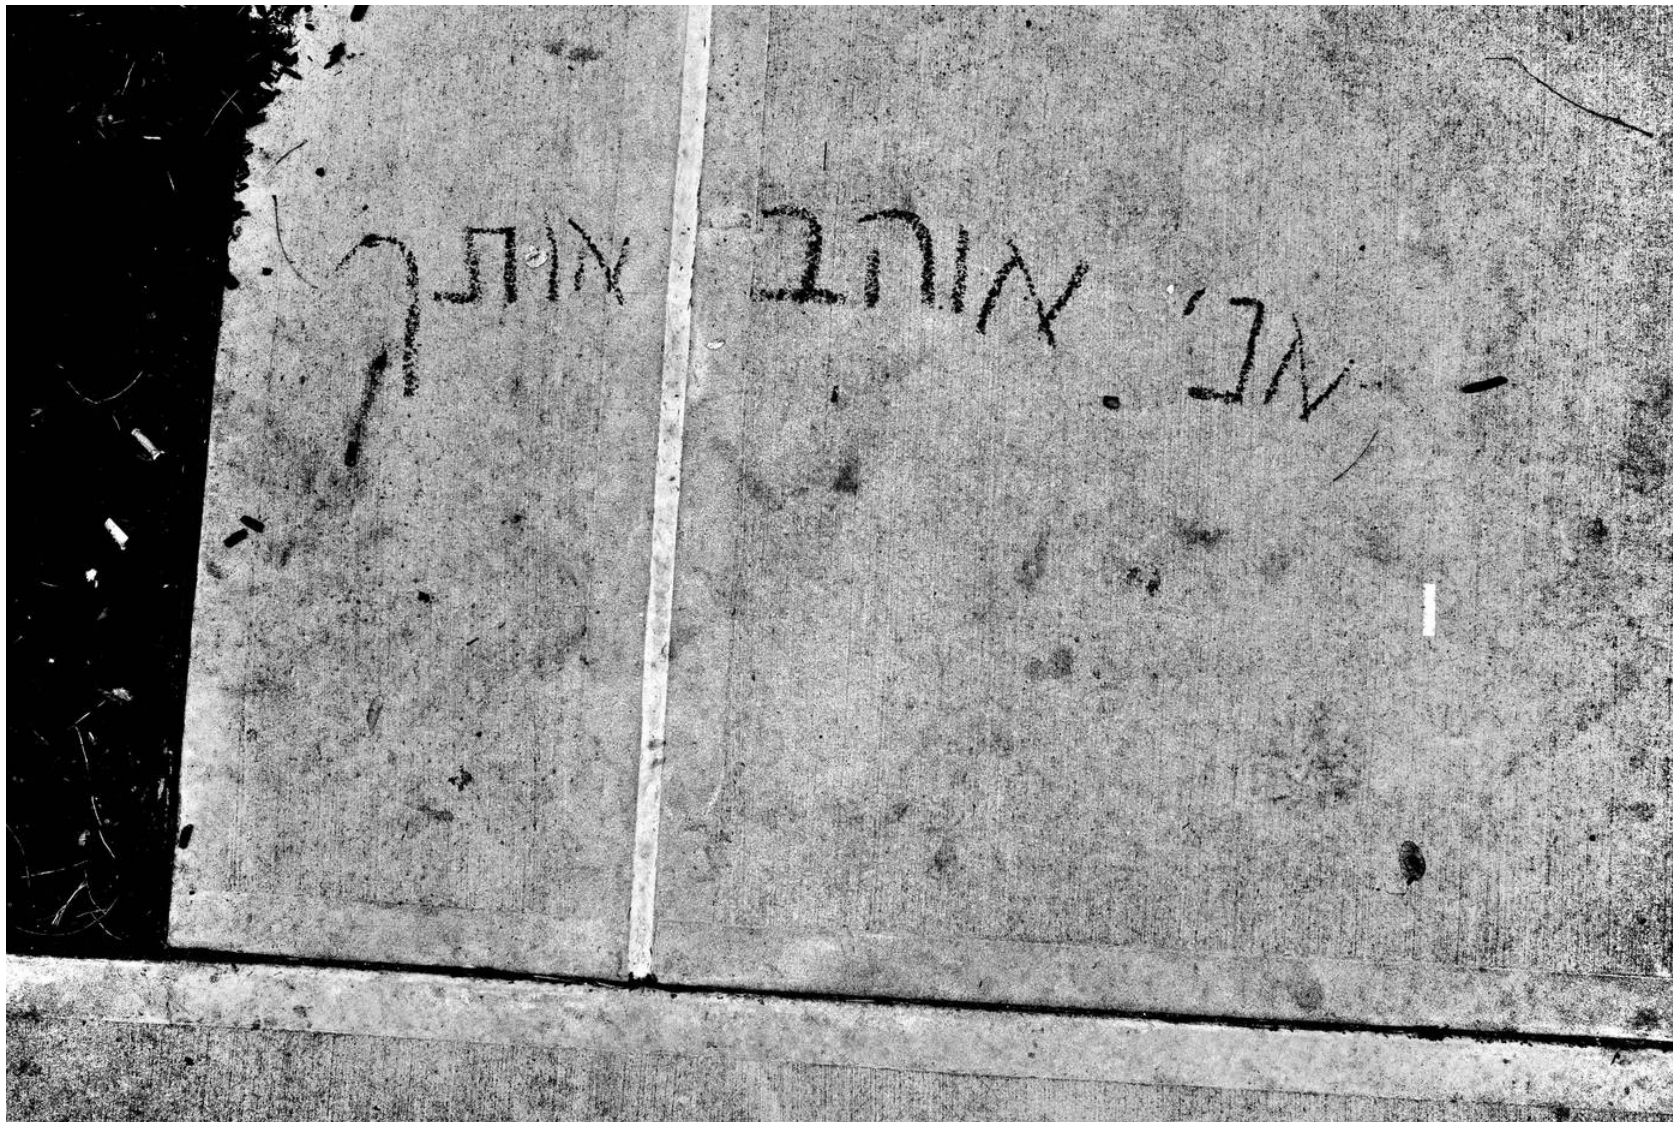 אני אוהב אותך